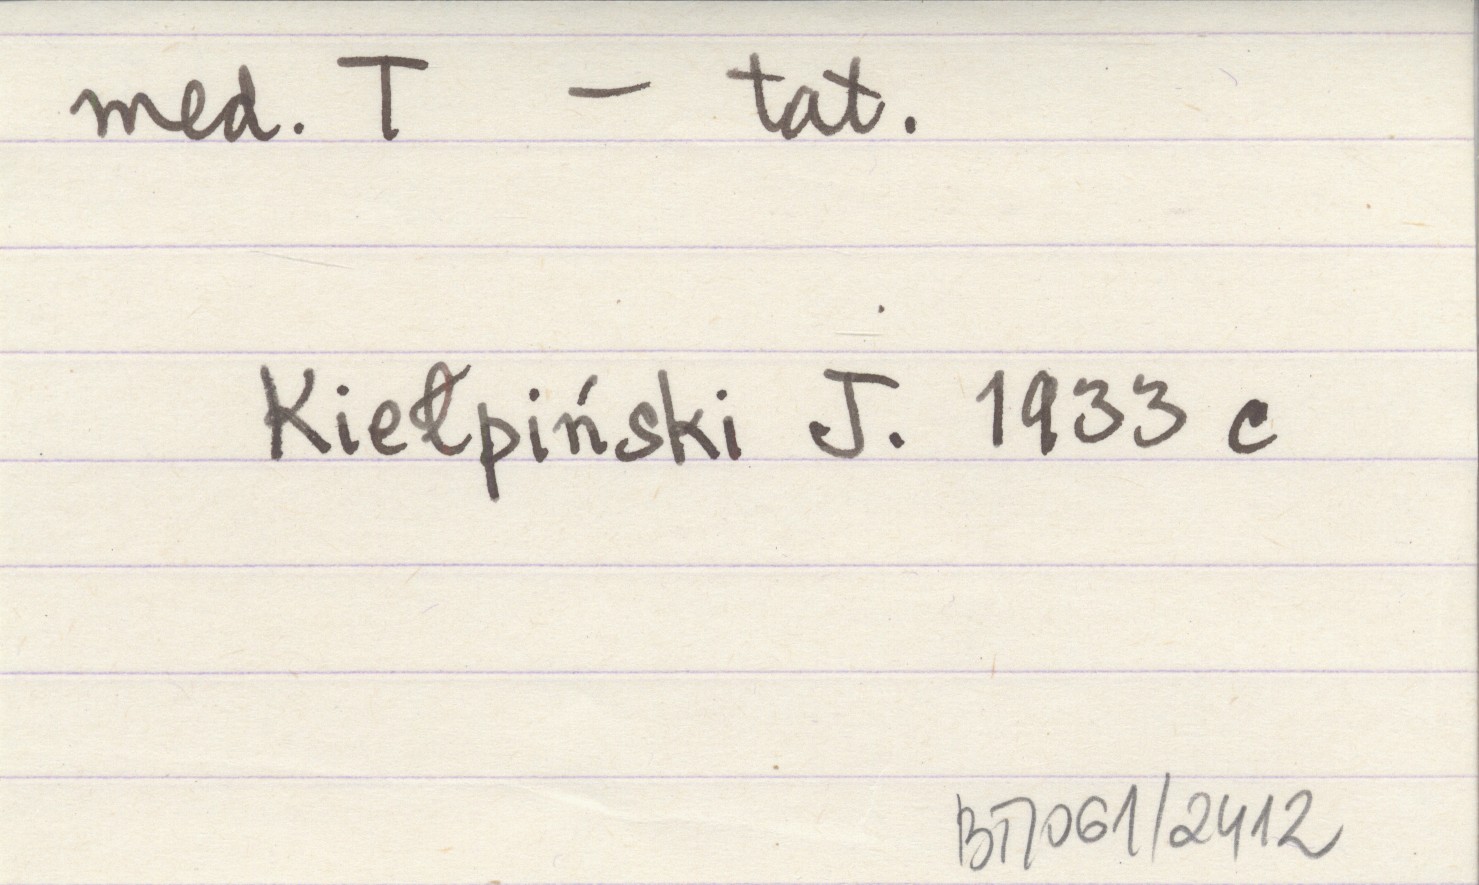 med. T – tat.
Kiełpiński J. 1933 c
BT7061/2412